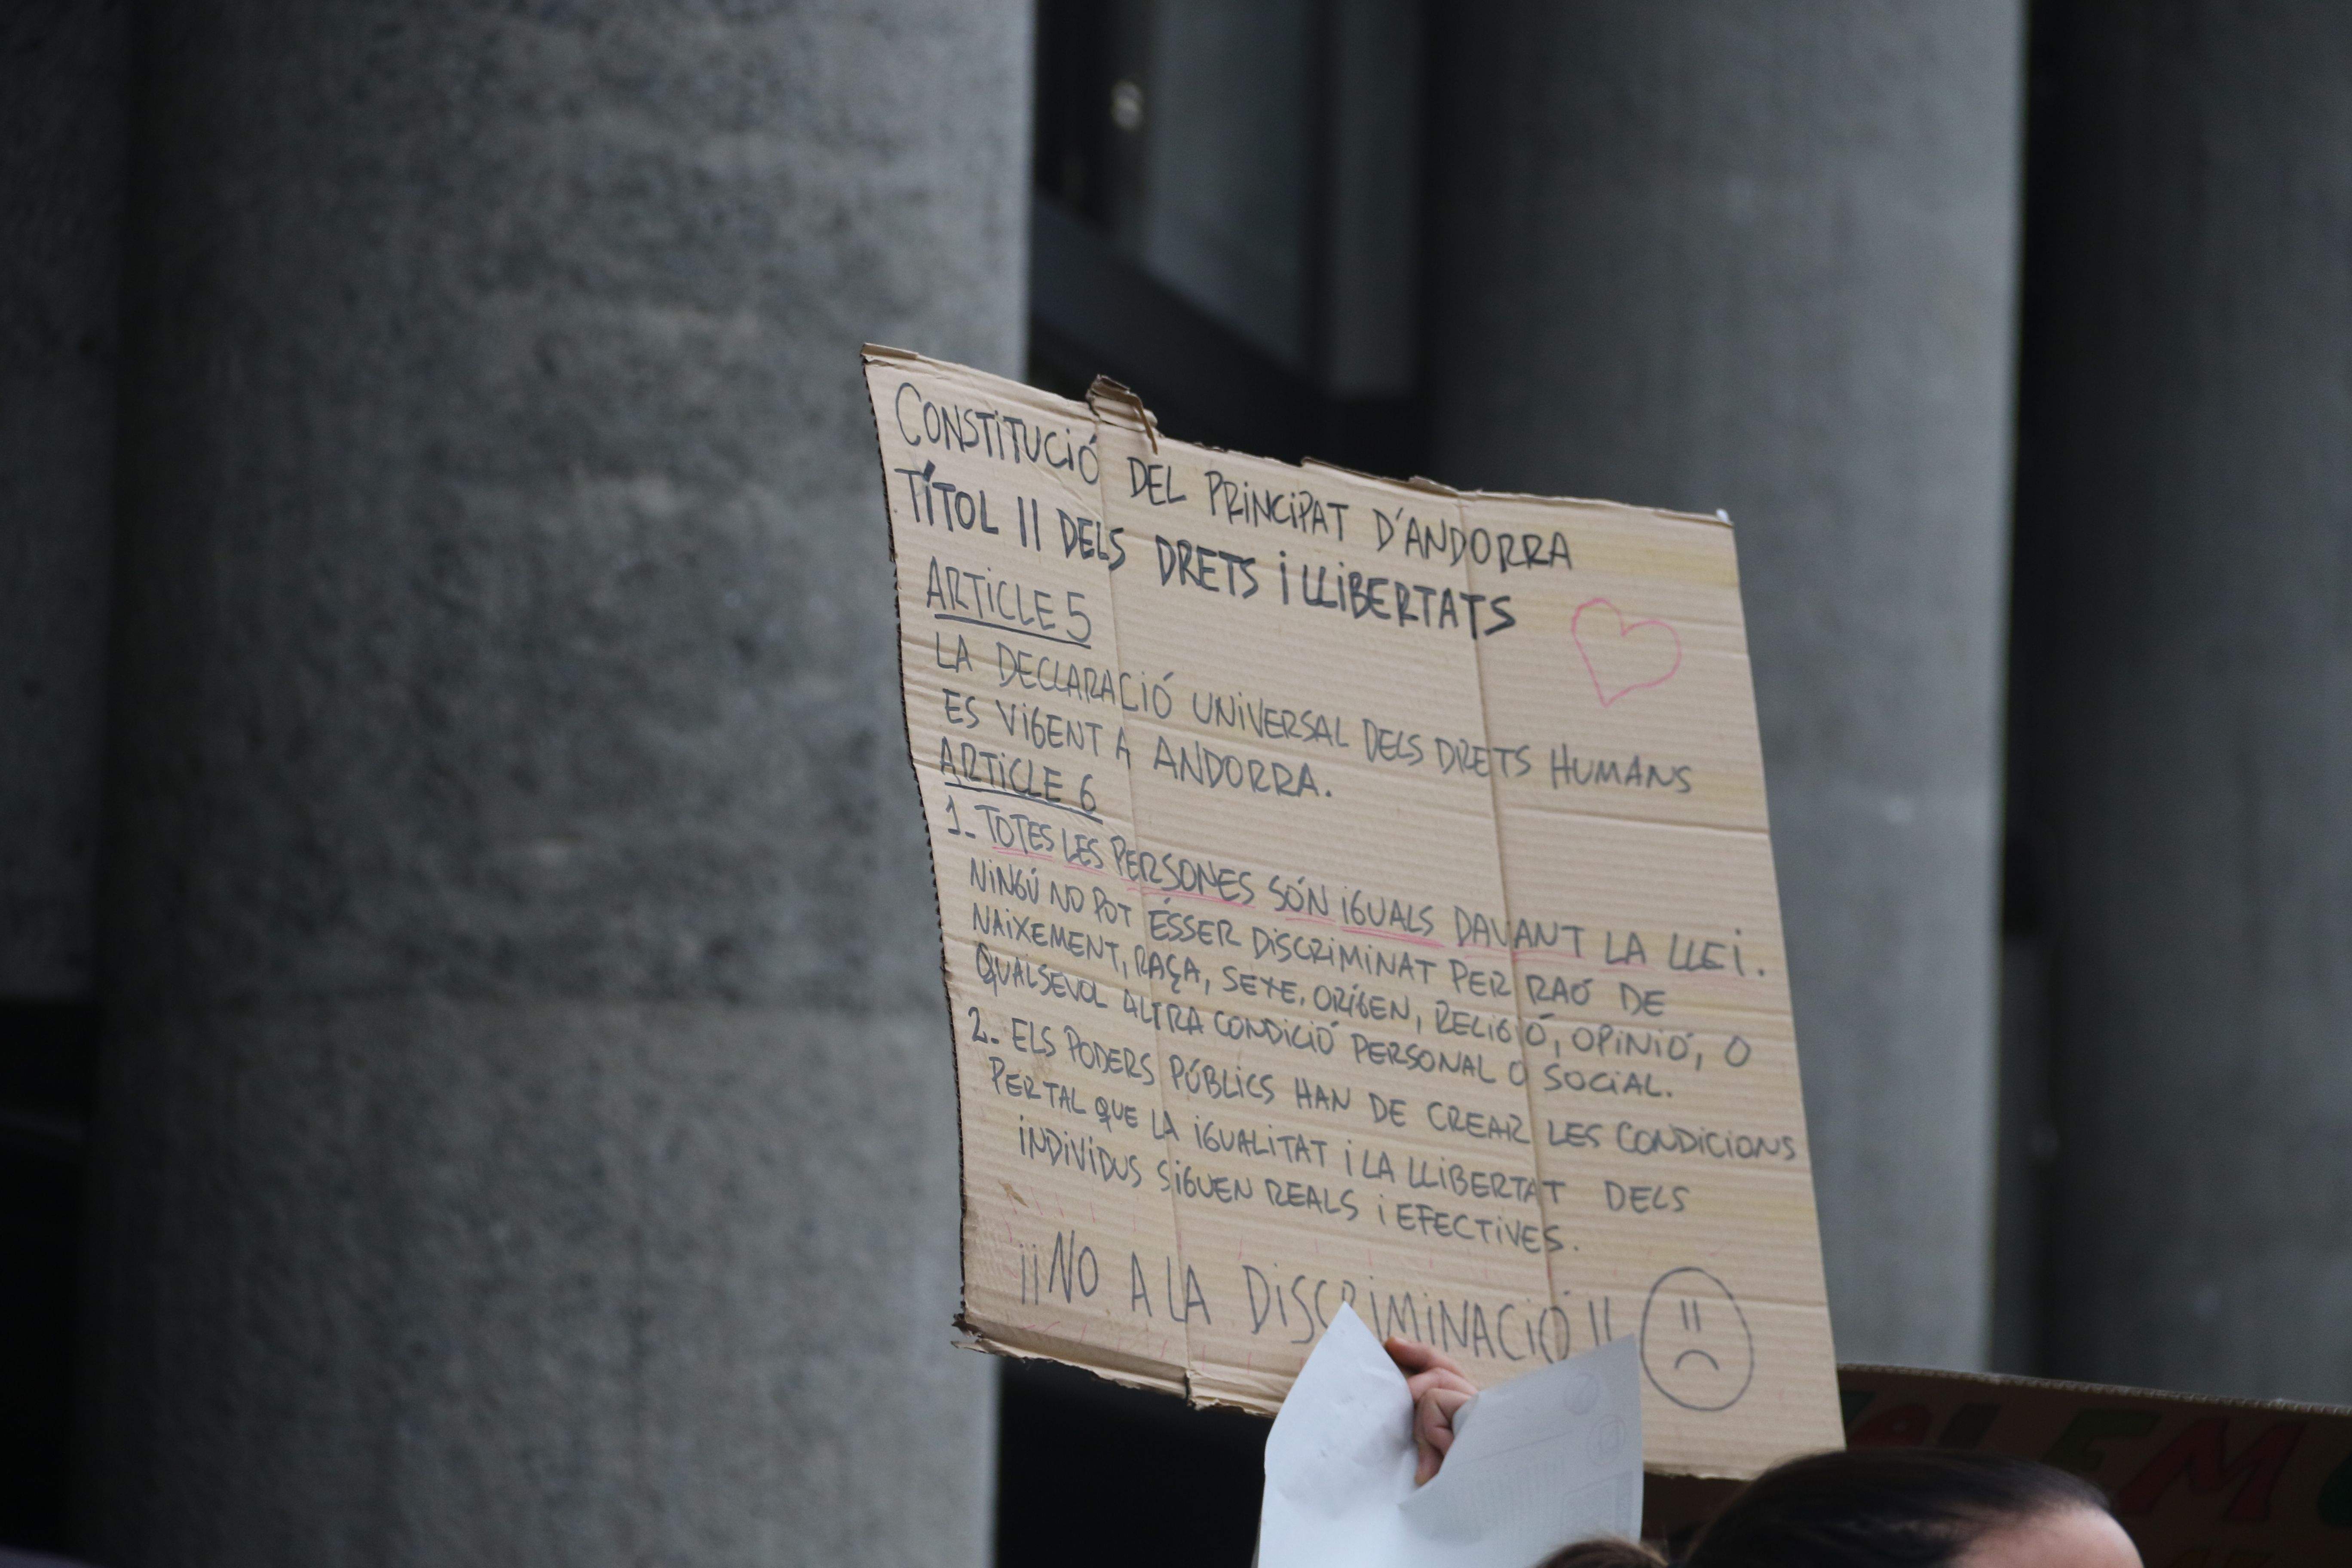 CONSTITUCIÓ DEL PRINCIPAT D'ANDORRA
TÍTOL II DELS DRETS I LLIBERTATS
ARTICLE 5
LA DECLARACIÓ UNIVERSAL DELS DRETS HUMANS
ES VIGENT A ANDORRA.
ARTICLE 6
1. TOTES LES PERSONES SÓN IGUALS DAVANT LA LLEI.
NINGÚ NO POT ÉSSER DISCRIMINAT PER RAÓ DE
NAIXEMENT, RAÇA, SEXE, ORÍGEN, RELIGIÓ, OPINIÓ, O
QUALSEVOL ALTRA CONDICIÓ PERSONAL O SOCIAL.
2. ELS PODERS PÚBLICS HAN DE CREAR LES CONDICIONS
PER TAL QUE LA IGUALITAT I LA LLIBERTAT DELS
INDIVIDUS SIGUEN REALS I EFECTIVES.
¡¡NO A LA DISCRIMINACIÓ!!